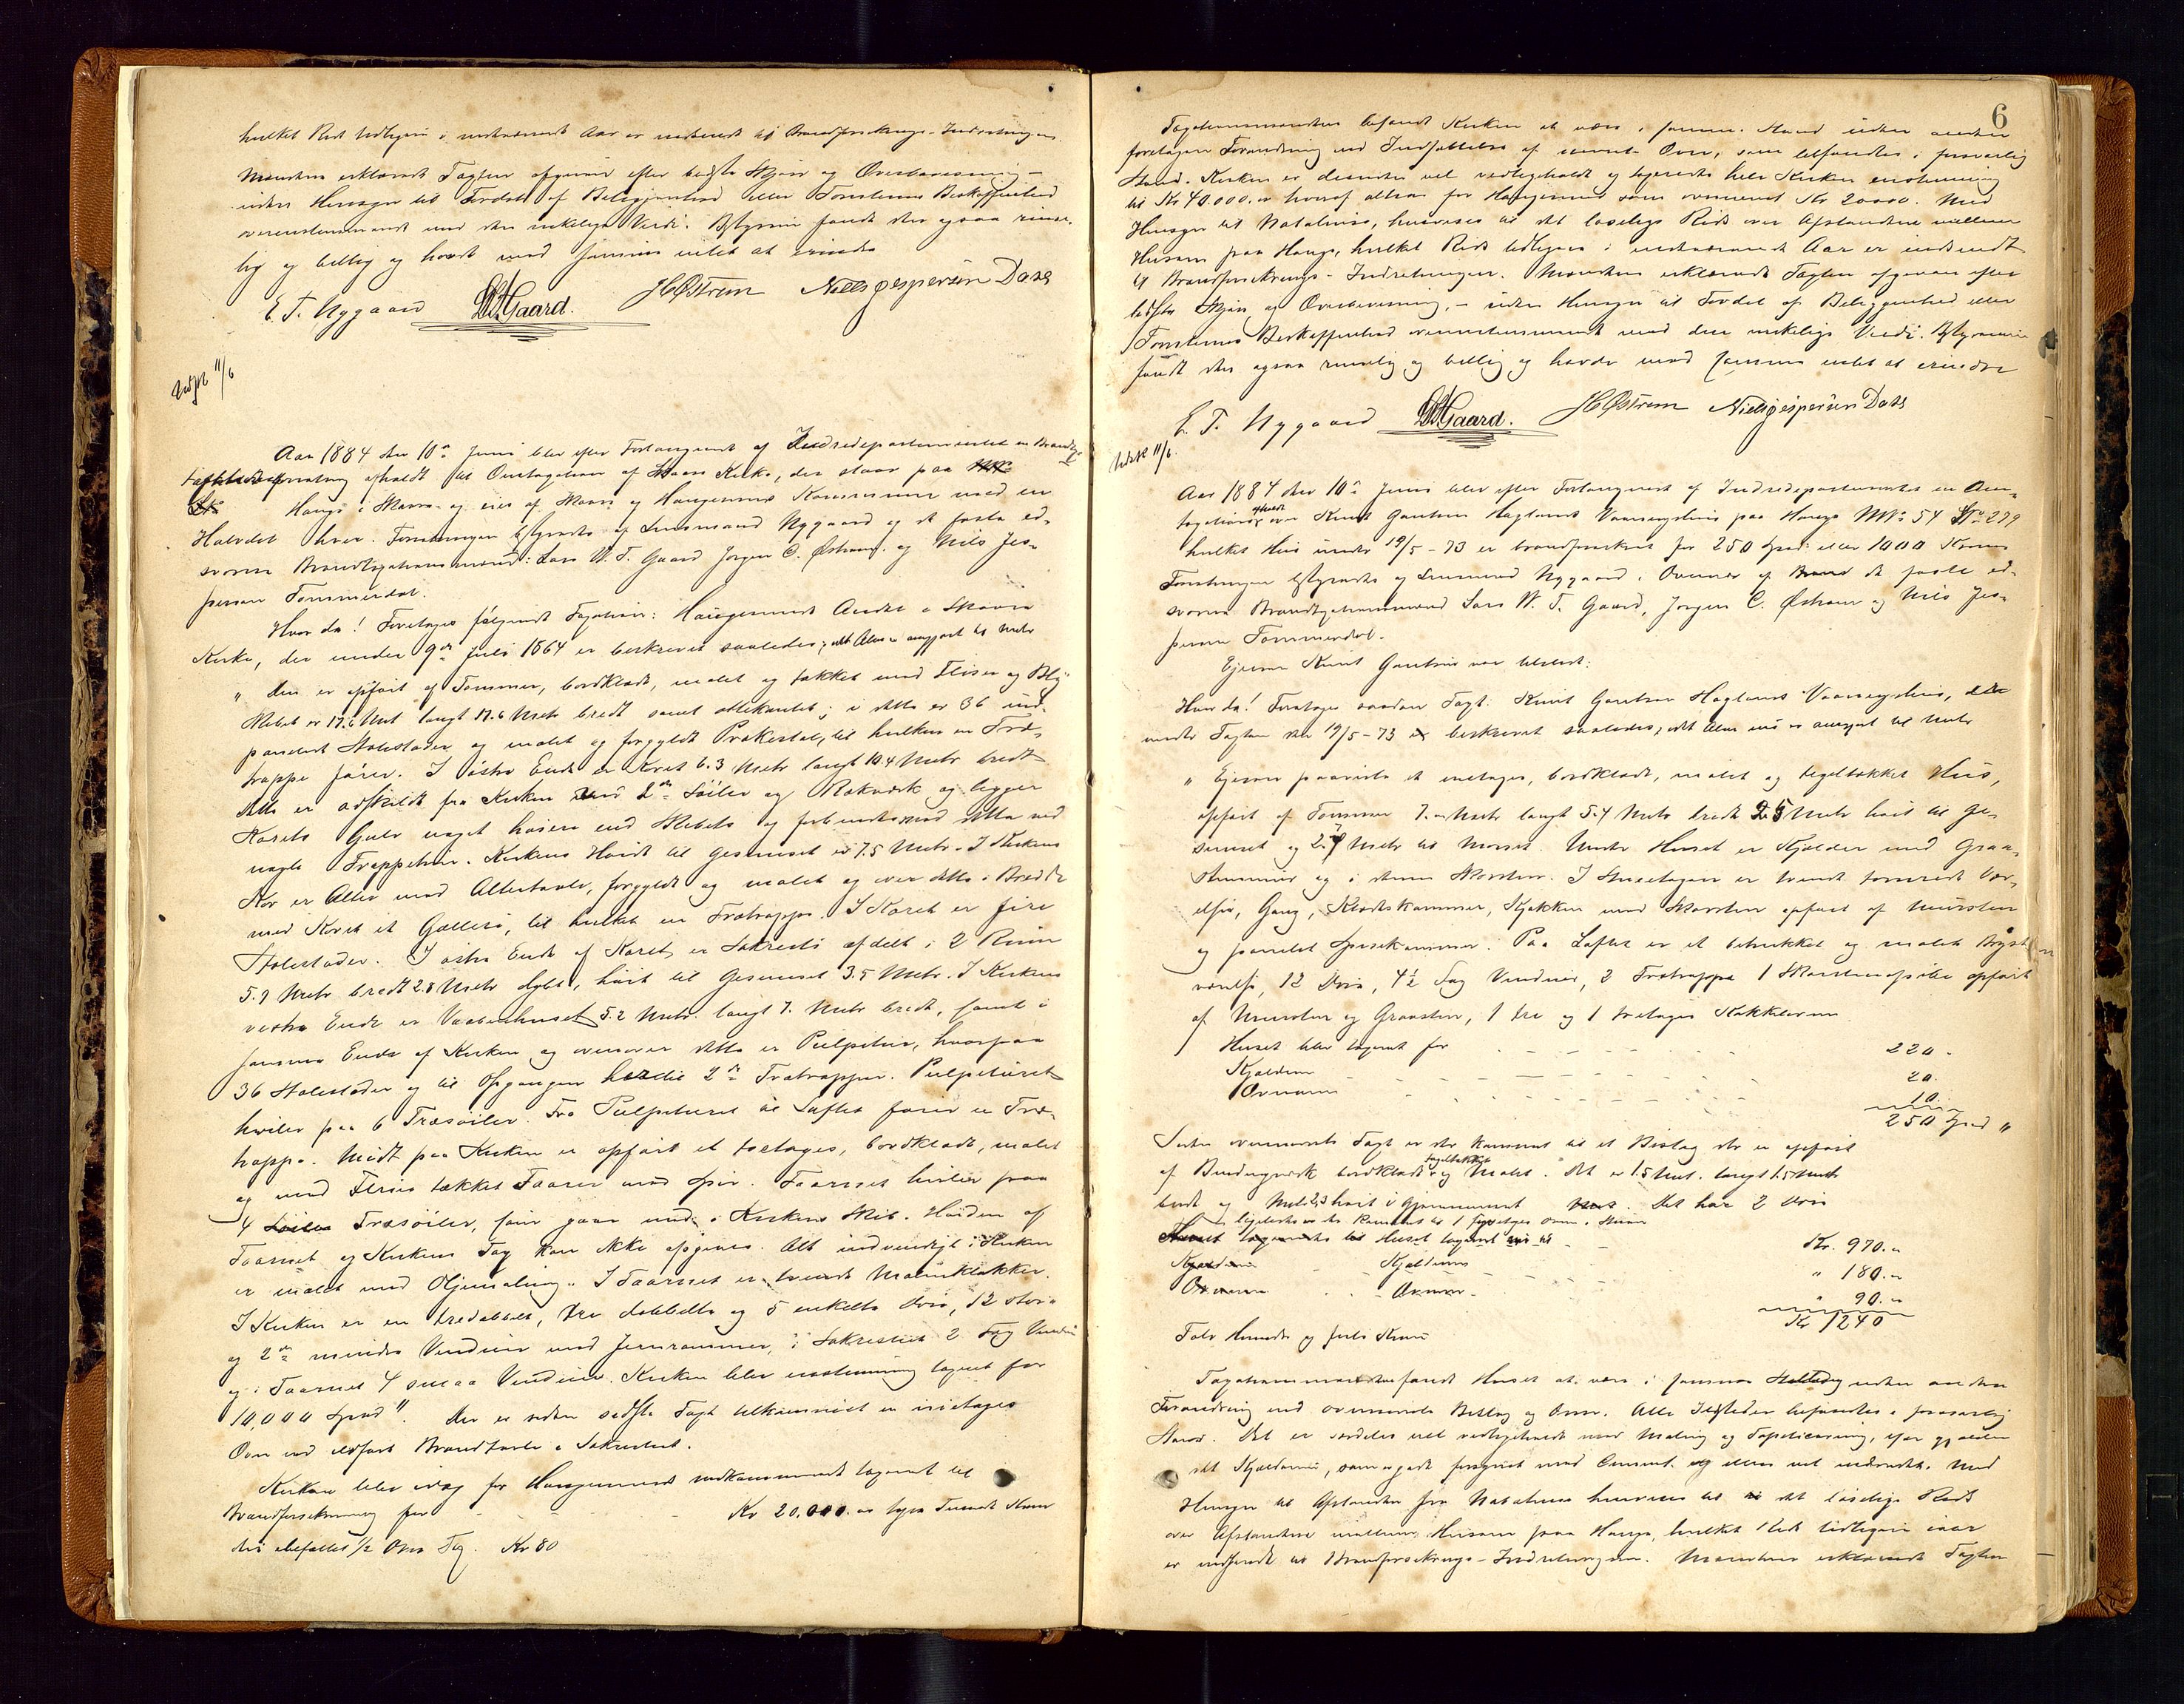 hvilket Rids tidligere i indeværende Aar er indsendt til Brandforsikrings-Indretningen.
Mændene erklærede Taxten afgiven efter bedste Skjøn og Overbevisning –
uden Hensyn til Fordel af Beliggenhed eller Tomternes Beskaffenhed
overensstemmende med den virkelige Værdi. Bestyreren fandt den ogsaa rime-
lig og billig og havde mod samme intet at erindre
E. T. Nygaard LWTGaard. JCØstrem Niels Jespersen Dass
Udst 11/6
Aar 1884 den 10de Juni blev efter Forlangende af Indredepartementet en Brand-
taxtforretning afholdt til Omtaxation af Skaare Kirke, der staar paa
Hauge i Skaare og eies af Skaare og Haugesunds Kommuner med en
Halvdel hver. Forretningen bestyredes af Lensmand Nygaard og de faste ed-
svorne Brandtaxationsmænd: Lars W. T. Gaard Jørgen C. Østrem og Nils Jes-
persen Tommerdal.
Hvor da! Foretages følgende Taxation: Haugesunds Andel i Skaare
Kirke, der under 9de Juli 1864 er beskrevet saaledes; idet Alen er omgjort til Meter
" Den er opført af Tømmer, bordklædt, malet og takket med Fliser og Bly
Skibet er 17.6 Met langt 17.6 Meter bredt samt ottekantet; i dette er 36 ind-
panelede Stolestader og malet og forgyldt Prækestol, til hvilken en Træ-
trappe fører. I østre Ende er Koret 6.3 Meter langt 10.4 Meter bredt
dette er adskildt fra Kirken ved 2de Søiler og Rækværk og ligger
Korets Gulv noget høiere end Skibets og forbindes med dette ved
nogle Trappetrin. Kirkens Høide til Gesimset er 7.5 Meter. I Kirkens
Kor er Alter med Altertavle, forgyldt og malet og over dette i Bredde
med Koret et Galleri, til hvilket en Trætrappe. I Koret er fire
Stolestader. I østre Ende af Koret er Sakristi afdelt i 2 Rum
5.9 Meter bredt 2.8 Meter dybt, høit til Gesimset 3.5 Meter. I Kirkens
vestre Ende er Vaabenhuset 5.2 Meter langt 7. Meter bredt, samt i
samme Ende af Kirken og ovenover dette er Pulpitur, hvorpaa
36 Stolestader og til Opgangen hertil 2de Trætrapper. Pulpituret
hviler paa 6 Træsøiler. Fra Pulpituret til Loftet fører en Træ-
trappe. Midt paa Kirken er opført et toetages, bordklædt, malet
og med Fliser takket Taarn med Spir. Taarnet hviler paa
4 Træsøiler, som gaar ned i Kirkens Skib. Høiden af
Taarnet og Kirkens Tag kan ikke opgives. Alt indvendigt i Kirken
er malet med Oljemaling. I Taarnet er tvende Malmklokker.
I Kirken er en tredobbelt, tre dobbelte og 5 enkelte Døre, 12 store
og 2de mindre Vinduer med Jernrammer, i Sakristiet 2 Fag Vinduer
og i Taarnet 4 smaa Vinduer. Kirken blev enstemmig taxeret for
10,000 Spd". Der er siden sidste Taxt tilkommet en enetages
Ovn ved ildfast Brandtavle i Sakristiet.
Kirken blev idag for Haugesunds vedkommende taxeret til
Brandforsikring for Kr 20,000.00 tyve Tusende Kroner
Heri befattet 1/2 Ovns Tag. Kr 80
6
Taxationsmændene befandt Kirken at være i samme Stand uden anden
foretagen Forandring end Indsættelse af nævnte Ovn, som befandtes i forsvarlig
Stand. Kirken er desuden vel vedligeholdt og taxeredes hele Kirken enstemmig
til Kr 40.000.00 hvoraf altsaa for Haugesund som ovennævnt Kr 20000. Med
Hensyn til Nabohuse, henvises til det løselige Rids over Afstandene mellem
Husene paa Hauge, hvilket Rids tidligere i indeværende Aar er indsendt
til Brandforsikrings-Indretningen. Mændene erklærede Taxten afgiven efter
bedste Skjøn og Overbevisning, – uden Hensyn til Fordel af Beliggenhed eller
Tomternes Beskaffenhed overensstemmende med den virkelige Værdi. Bestyreren
fandt den ogsaa rimelig og billig og havde mod samme intet at erindre
E. T. Nygaard LWTGaard. JCØstrem Niels Jespersen Dass
Udst 11/6.
Aar 1884 den 10de Juni blev efter Forlangende af Indredepartementet en Om-
taxation afholdt over Knut Gautsen Haglands Vaaningshus paa Hauge MNo 54 LNo 279
hvilket Hus under 19/5-73 er brandforsikret for 250 Spd eller 1000 Kroner
Forretningen bestyredes af Lensmand Nygaard i Overvær af de faste ed-
svorne Brandtaxationsmænd Lars W. T. Gaard, Jørgen C. Østrem og Nils Jes-
persen Tommerdal.
Ejeren Knut Gautsen var tilstede:
Hvor da! Foretages saadan Taxt: Knut Gautsen Haglands Vaaningshus, der
under Taxten den 19/5-73 er beskrevet saaledes, idet Alen nu er omgjort til Meter
" Ejeren paaviste et enetages, bordklædt, malet og tegltækket Hus,
opført af Tømmer 7. Meter langt 5.4 Meter bredt 2.5 Meter høit til Ge-
simset og 2.4 Meter til Mønset. Under Huset er Kjelder med Graa-
stensmur og i denne Skorsten. I Stueetagen er tvende tapetserede Vær-
elser, Gang, Klædeskammer, Kjøkken med Skorsten opført af Mursten
og panelet Spisekammer. Paa Loftet er et betrukket og malet Bryst-
værelse, 12 Døre, 4 1/2 Fag Vinduer, 2 Trætrappe 1 Skorstenspibe opført
af Mursten og Graasten, 1 tre og 1 toetages Kakkelovn
Huset blev taxeret for 220 -
Kjelderen 20.
Ovnene 10.
250 Spd "
Siden ovennævnte Taxt er der kommet til et Bislag der er opført
af Bindingsværk bordklædt tegltækket og Malet. Det er 1.5 Met. langt 1.5 Meter
bredt og Met 2.3 høit i Gjennemsnit. Det har 2 Døre
ligeledes er der kommet til 1 fireetages Ovn i Stuen
Huset taxeret nu til Kr. 970.00
Kjelderen " 180.00
Ovnene " 90.00
Kr 1240
Tolv Hundrede og firti Kroner
Taxationsmændene fandt Huset at være i samme uden anden
Forandring end ovennævnte Bislag og Ovn. Alle Ildsteder befandtes i forsvarlig
Stand. Det er særdeles vel vedligeholdt med Maling og Tapetsering, især gjælder
det Kjelderen, som er godt forsynet med Cement og ellers vel indredet. Med
Hensyn til Afstanden fra Nabohuse henvises til det løselige Rids
over Afstandene mellem Husene paa Hauge, hvilket Rids tidligere iaar
er indsendt til Brandforsikrings-Indretningen. Mændene erklærede Taxten